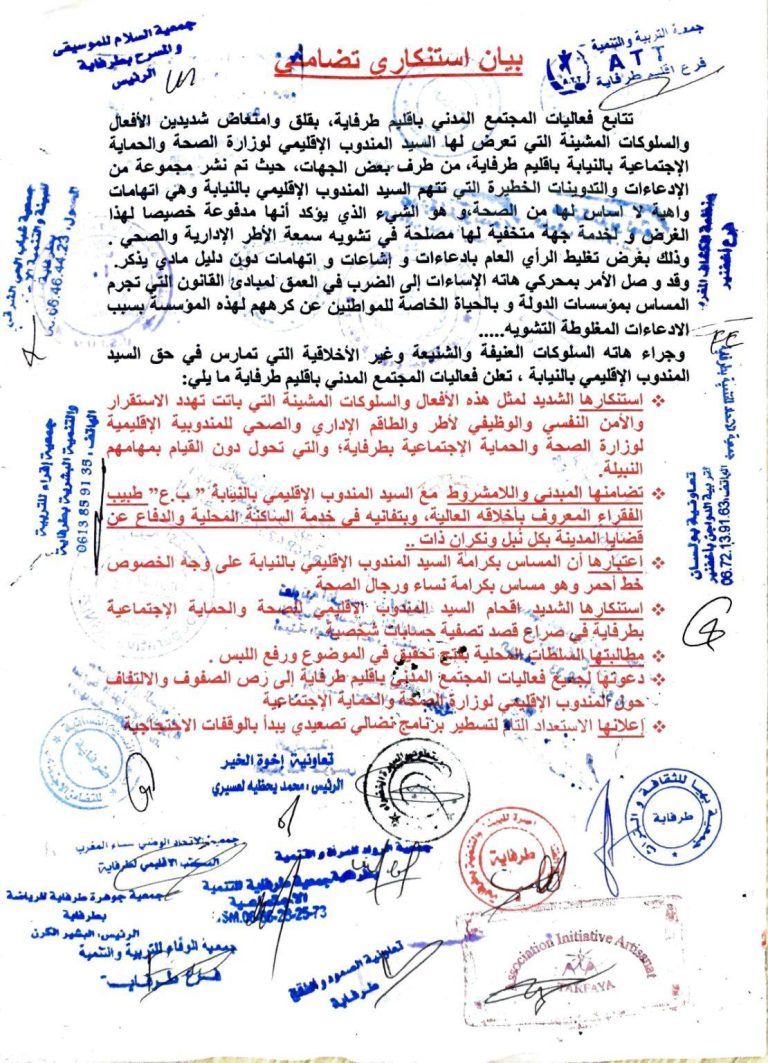 جمعية السلام للموسيقى
والمسرح بطرفاية
الرئيس
جمعية التربية والتنمية
ATT
A.T.T
فرع إقليم طرفاية
بيان استنكاري تضامني
تتابع فعاليات المجتمع المدني بإقليم طرفاية، بقلق وامتعاض شديدين الأفعال
والسلوكات المشينة التي تعرض لها السيد المندوب الإقليمي لوزارة الصحة والحماية
الإجتماعية بالنيابة بإقليم طرفاية، من طرف بعض الجهات، حيث تم نشر مجموعة من
الإدعاءات والتدوينات الخطيرة التي تتهم السيد المندوب الإقليمي بالنيابة وهي اتهامات
واهية لا اساس لها من الصحة،و هو الشيء الذي يؤكد أنها مدفوعة خصيصا لهذا
الغرض و لخدمة جهة متخفية لها مصلحة في تشويه سمعة الأطر الإدارية والصحي .
وذلك بغرض تغليط الرأي العام بادعاءات و إشاعات و اتهامات دون دليل مادي يذكر.
وقد و صل الأمر بمحركي هاته الإساءات إلى الضرب في العمق لمبادئ القانون التي تجرم
المساس بمؤسسات الدولة و بالحياة الخاصة للمواطنين عن كرههم لهذه المؤسسة بسبب
الادعاءات المغلوطة التشويه.....
وجراء هاته السلوكات العنيفة والشنيعة وغير الأخلاقية التي تمارس في حق السيد
المندوب الإقليمي بالنيابة ، تعلن فعاليات المجتمع المدني بإقليم طرفاية ما يلي:
❖ استنكارها الشديد لمثل هذه الأفعال والسلوكات المشينة التي باتت تهدد الاستقرار
والأمن النفسي والوظيفي لأطر والطاقم الإداري والصحي للمندوبية الإقليمية
لوزارة الصحة والحماية الإجتماعية بطرفاية؛ والتي تحول دون القيام بمهامهم
النبيلة.
❖ تضامنها المبدئي واللامشروط مع السيد المندوب الإقليمي بالنيابة " ب.ع" طبيب
الفقراء المعروف بأخلاقه العالية، وبتفانيه في خدمة الساكنة المحلية والدفاع عن
قضايا المدينة بكل نبل ونكران ذات ..
❖ اعتبارها أن المساس بكرامة السيد المندوب الإقليمي بالنيابة على وجه الخصوص
خط أحمر وهو مساس بكرامة نساء ورجال الصحة
❖ استنكارها الشديد، إقحام السيد المندوب الإقليمي للصحة والحماية الإجتماعية
بطرفاية في صراع قصد تصفية حسابات شخصية
❖ مطالبتها السلطات المحلية بفتح تحقيق في الموضوع ورفع اللبس .
❖ دعوتها لجميع فعاليات المجتمع المدني بإقليم طرفاية إلى رص الصفوف والالتفاف
حول المندوب الإقليمي لوزارة الصحة والحماية الإجتماعية
❖ إعلانها الاستعداد التام لتسطير برنامج نضالي تصعيدي يبدأ بالوقفات الاحتجاجية
للبيئة والتنمية
بطرفاية
06.46.44.23
جمعية إقراء للتربية
والتنمية البشرية بطرفاية
الهاتف: 0613 85 91 38
تعاونية بولسان
لتربية الدواجن بأخفنير
الهاتف: 06.72.13.91.63
تعاونية إخوة الخير
الرئيس: محمد يحظيه لعسيري
طرفاية
جمعية بهيا للثقافة و التراث
طرفاية
طرفاية
جمعية الاتحاد الوطني نساء المغرب
المكتب الاقليمي لطرفاية
جمعية الرواد للمرأة و التنمية
بطرفاية
جمعية طرفاية للتنمية
الاجتماعية
جمعية جوهرة طرفاية للرياضة
بطرفاية
الرئيس: البشير الكرن
جمعية الوفاء للتربية والتنمية
فرع طرفاية
تعاونية الصمود و
طرفاية
Association Initiative Artisanat
TARFAYA